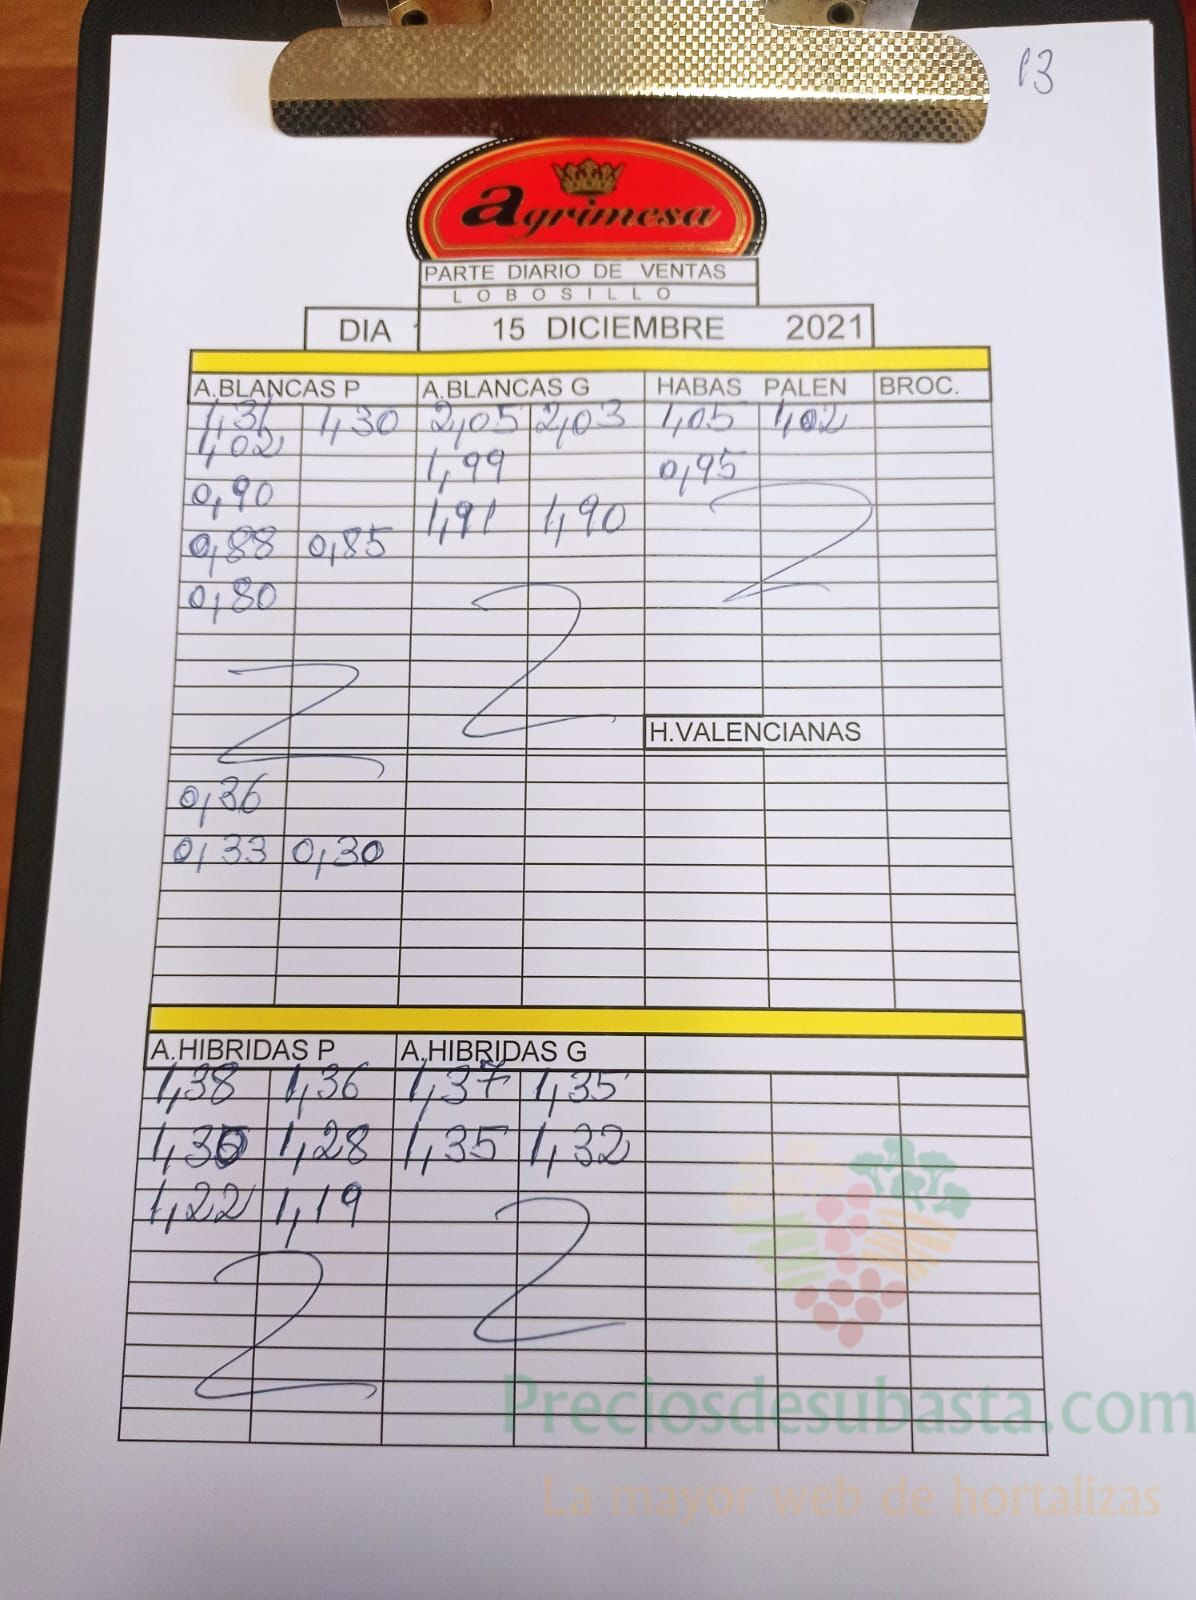 13
Agrimesa
PARTE DIARIO DE VENTAS
LOBOSILLO
DIA 15 DICIEMBRE 2021
A.BLANCAS P A.BLANCAS G HABAS PALEN BROC.
1,31 1,30 2,05 2,03 1,05 1,02
1,02
1,99 0,95
0,90
1,91 1,90
0,88 0,85
0,80
H.VALENCIANAS
0,36
0,33 0,30
A.HIBRIDAS P A.HIBRIDAS G
1,38 1,36 1,37 1,35
1,30 1,28 1,35 1,32
1,22 1,19
Preciosdesubasta.com
La mayor web de hortalizas